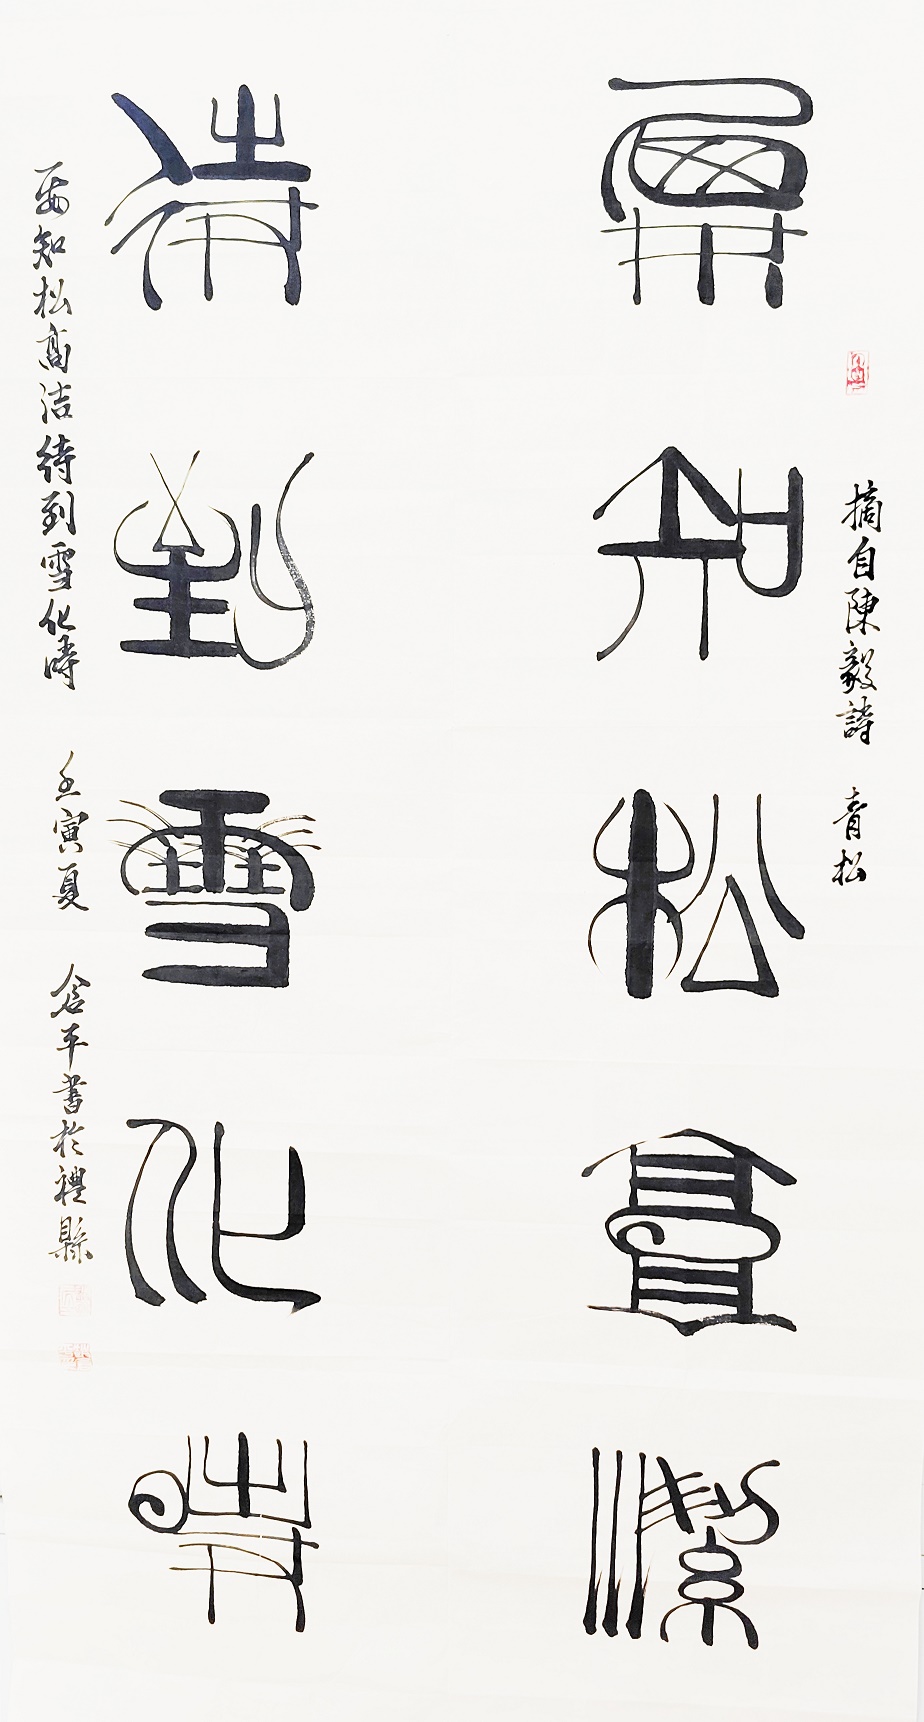 摘自陳毅詩 青松
要知松高潔
待到雪化時
要知松高洁待到雪化時 壬寅夏 平書於禮縣